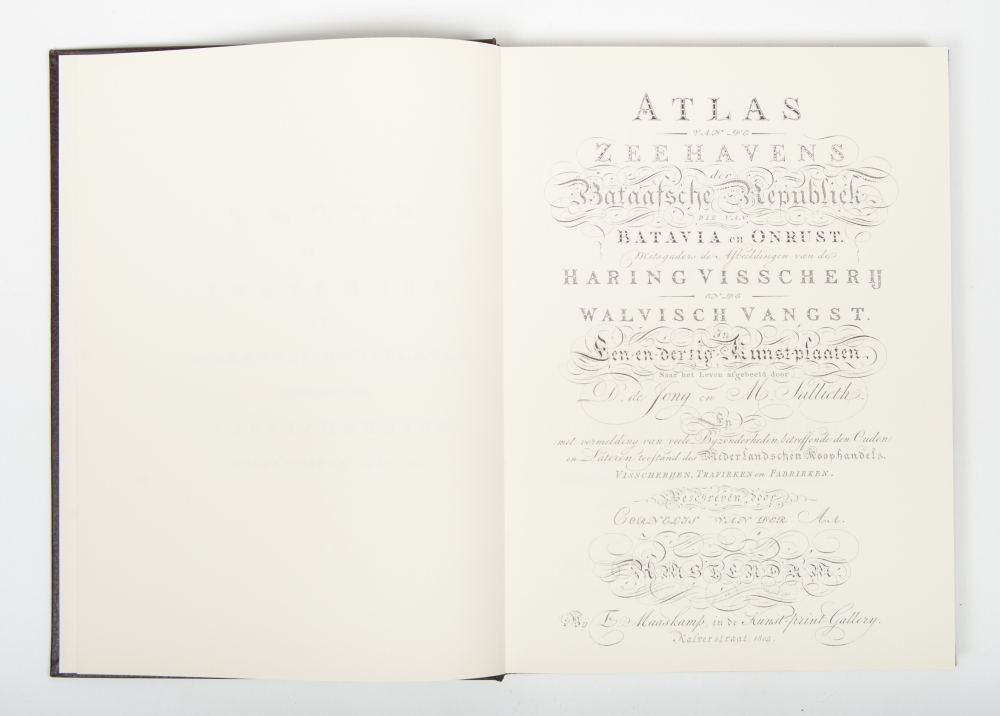 ATLAS
VAN DE
ZEEHAVENS
der
Bataafsche Republiek
DIE VAN
BATAVIA en ONRUST.
Mitsgaders de Afbeeldingen van de
HARING VISSCHERIJ
EN DE
WALVISCH VANGST.
In
Een-en-dertig Kunstplaaten.
Naar het Leven afgebeeld door
D. de Jong en M. Sallieth.
En
met vermelding van veele Byzonderheden, betreffende den Ouden
en Lateren toestand des Nederlandschen Koophandels,
VISSCHERIJEN, TRAFIEKEN en FABRIEKEN.
Beschreven door
CORNELIS VAN DER AA.
AMSTERDAM:
By E. Maaskamp, in de Kunst-print Gallery.
Kalverstraat,